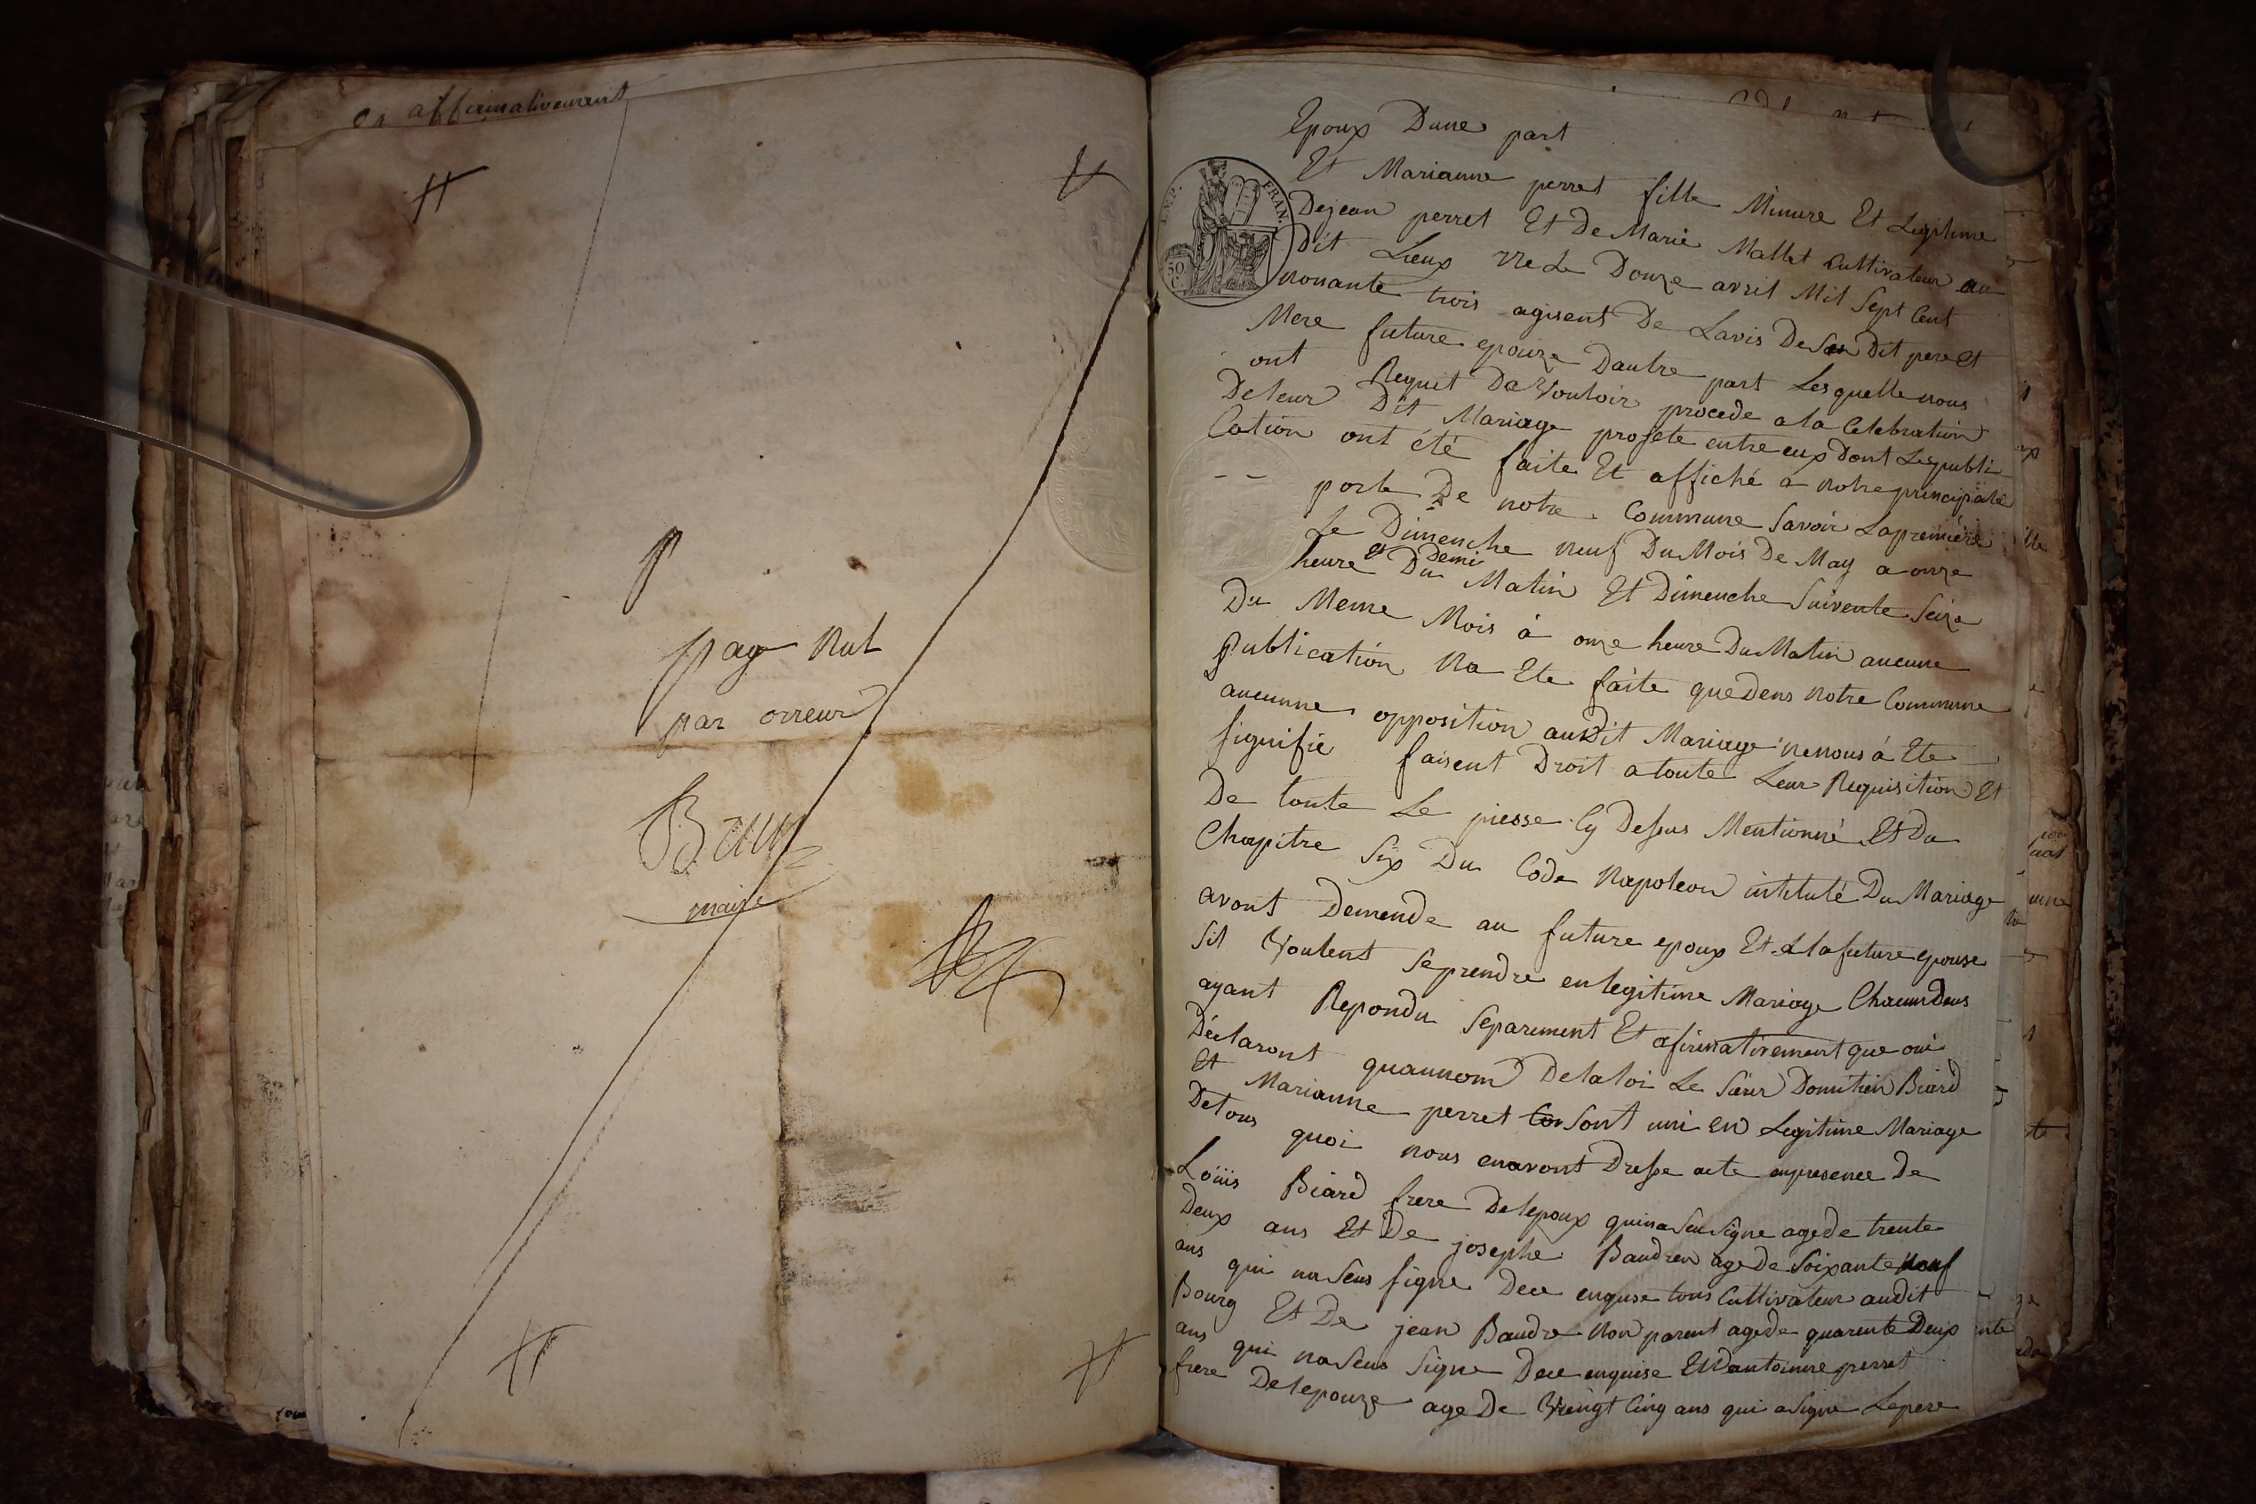 et affirmativement
pag Nul
par orreur
Brun
maire
EMP. FRAN.
50 C.
Epoux Dune part
Et Marianne perret fille Minure Et Legitime
Dejean perret Et De Marie Mallet Cultivateur au
Dit Lieux née Le Douze avril Mil Sept Cent
nonante trois agisent De Lavis De Son Dit pere Et
Mere future epouze Dautre part Lesquelle nous
ont Requit De Vouloir procede a la Celebration
De leur Dit Mariage projete entre eux Dont Les publi
Cation ont été faite Et affiché a notre principale
porte De notre Commune Savoir La premiere
Le Dimenche neuf Du Mois De May a onze
heure et Demi Du Matin Et Dimenche Suivente Seize
Du Meme Mois à onze heure Du Matin aucune
Publication Na Ete faite que Dens notre Commune
aucunne opposition audit Mariage ne nous à Ete
signifie faisent Droit a toute Leur Requisition Et
De toute Le piesse Cy Dessus Mentionné Et Du
Chapitre Six Du Code Napoleon intitulé Du Mariage
avont Demende au future epoux Et A la future epouse
Sil Voulent Se prendre en legitime Mariage Chacun Deus
ayant Repondu Separement Et afirmativement que oui
Déclaront quau nom De la loi Le Sieur Domitien Biard
Et Marianne perret Con Sont uni en Legitime Mariage
De tous quoi nous en avont Dresse acte en presence De
Loüis Biard frere De lepoux qui na Seu Signe age de trente
Deux ans Et De josephe Baudren age De Soixante neuf
ans qui na Seus signe Dece enquise tous Cultivateur audit
Bourg Et De jean Baudre Non parent age de quarente Deux
ans qui na Seus Signe Dece enquise Et Dantoinne perret
frere De lepouze age De Vingt Cinq ans qui a Signe Le pere